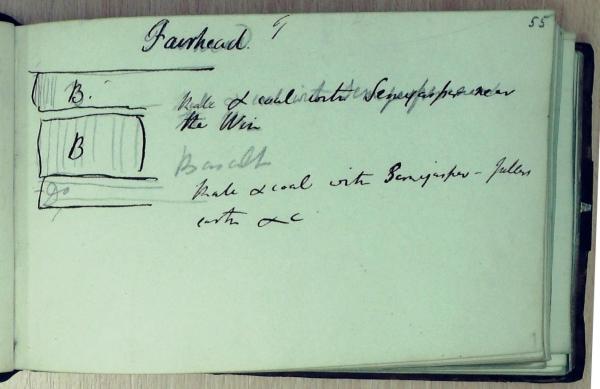 55
Fairhead. 9
B.
Shale & coal with Semijasper near
the Win
B
Basalt
Do
Shale & coal with Semijasper - fullers
earth &c